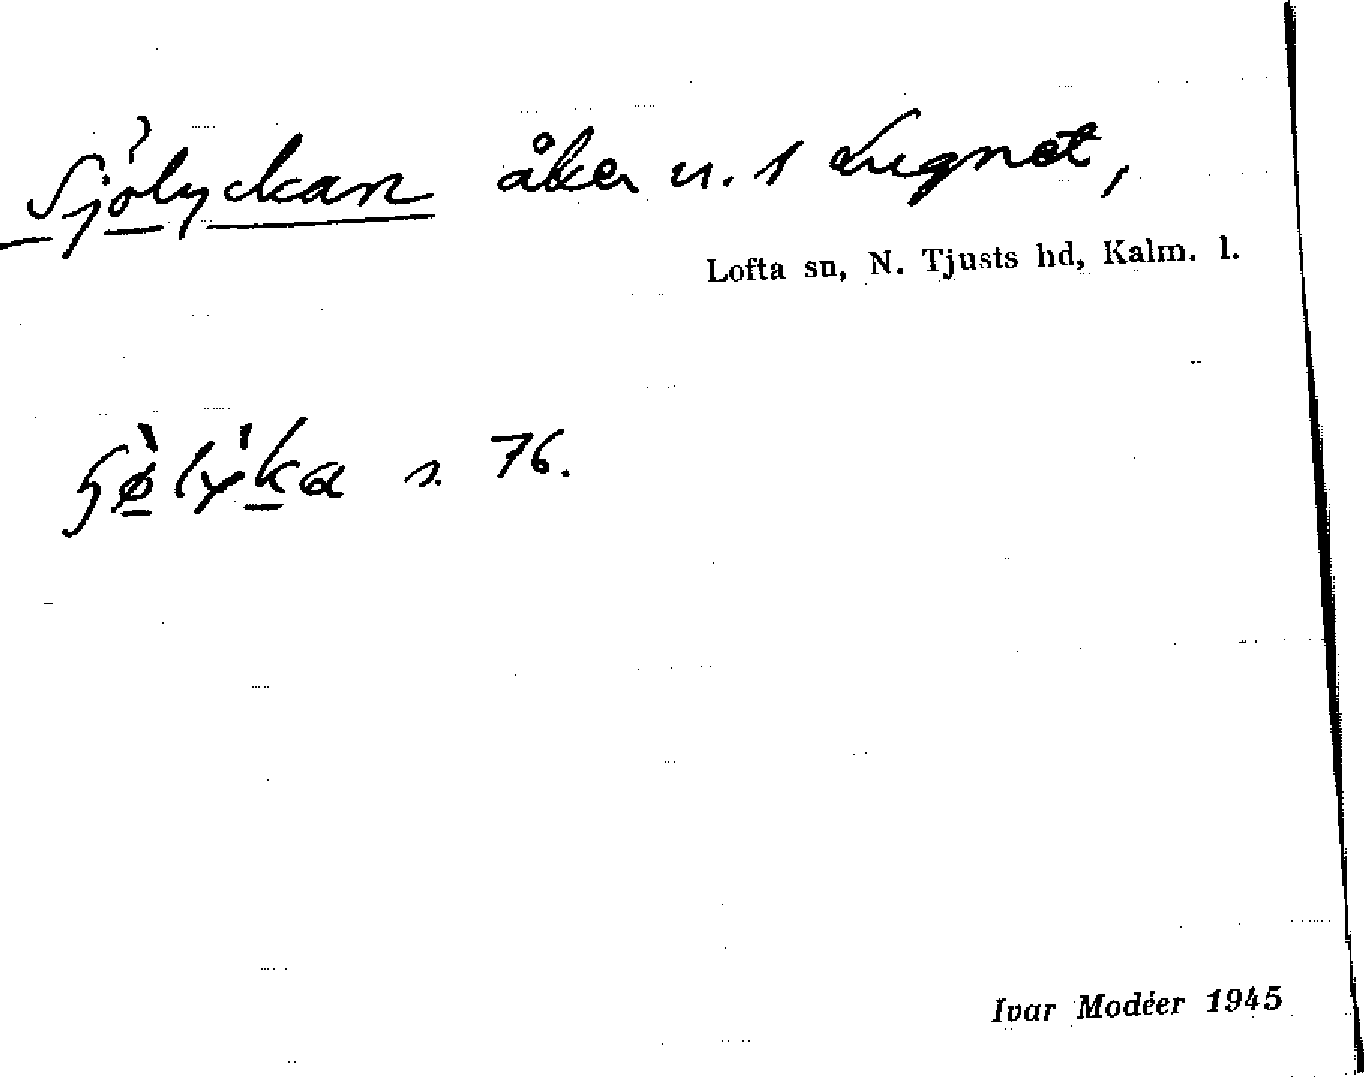 Sjölyckan åker u. 1 Lugnet,
Lofta sn, N. Tjusts hd, Kalm. l.
s. 76.
Ivar Modéer 1945